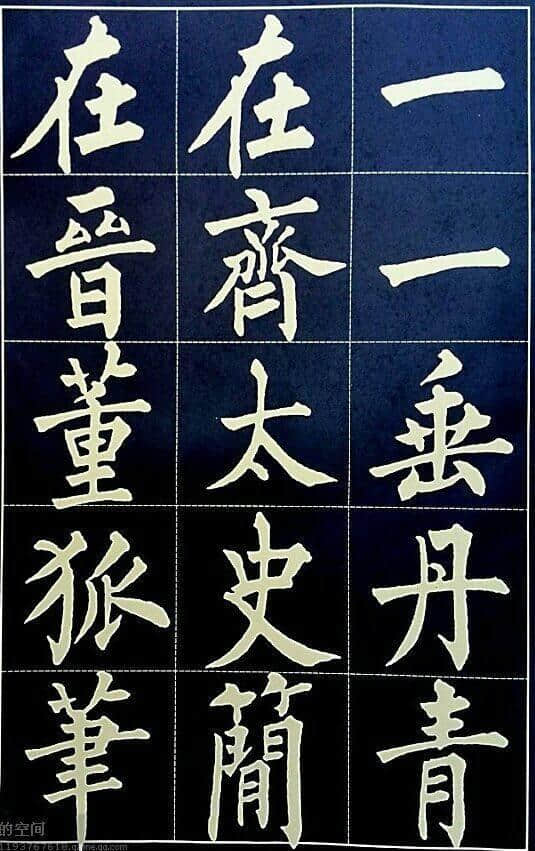 一一垂丹青
在齊太史簡
在晉董狐筆
的空间
1193767618.qzone.qq.com